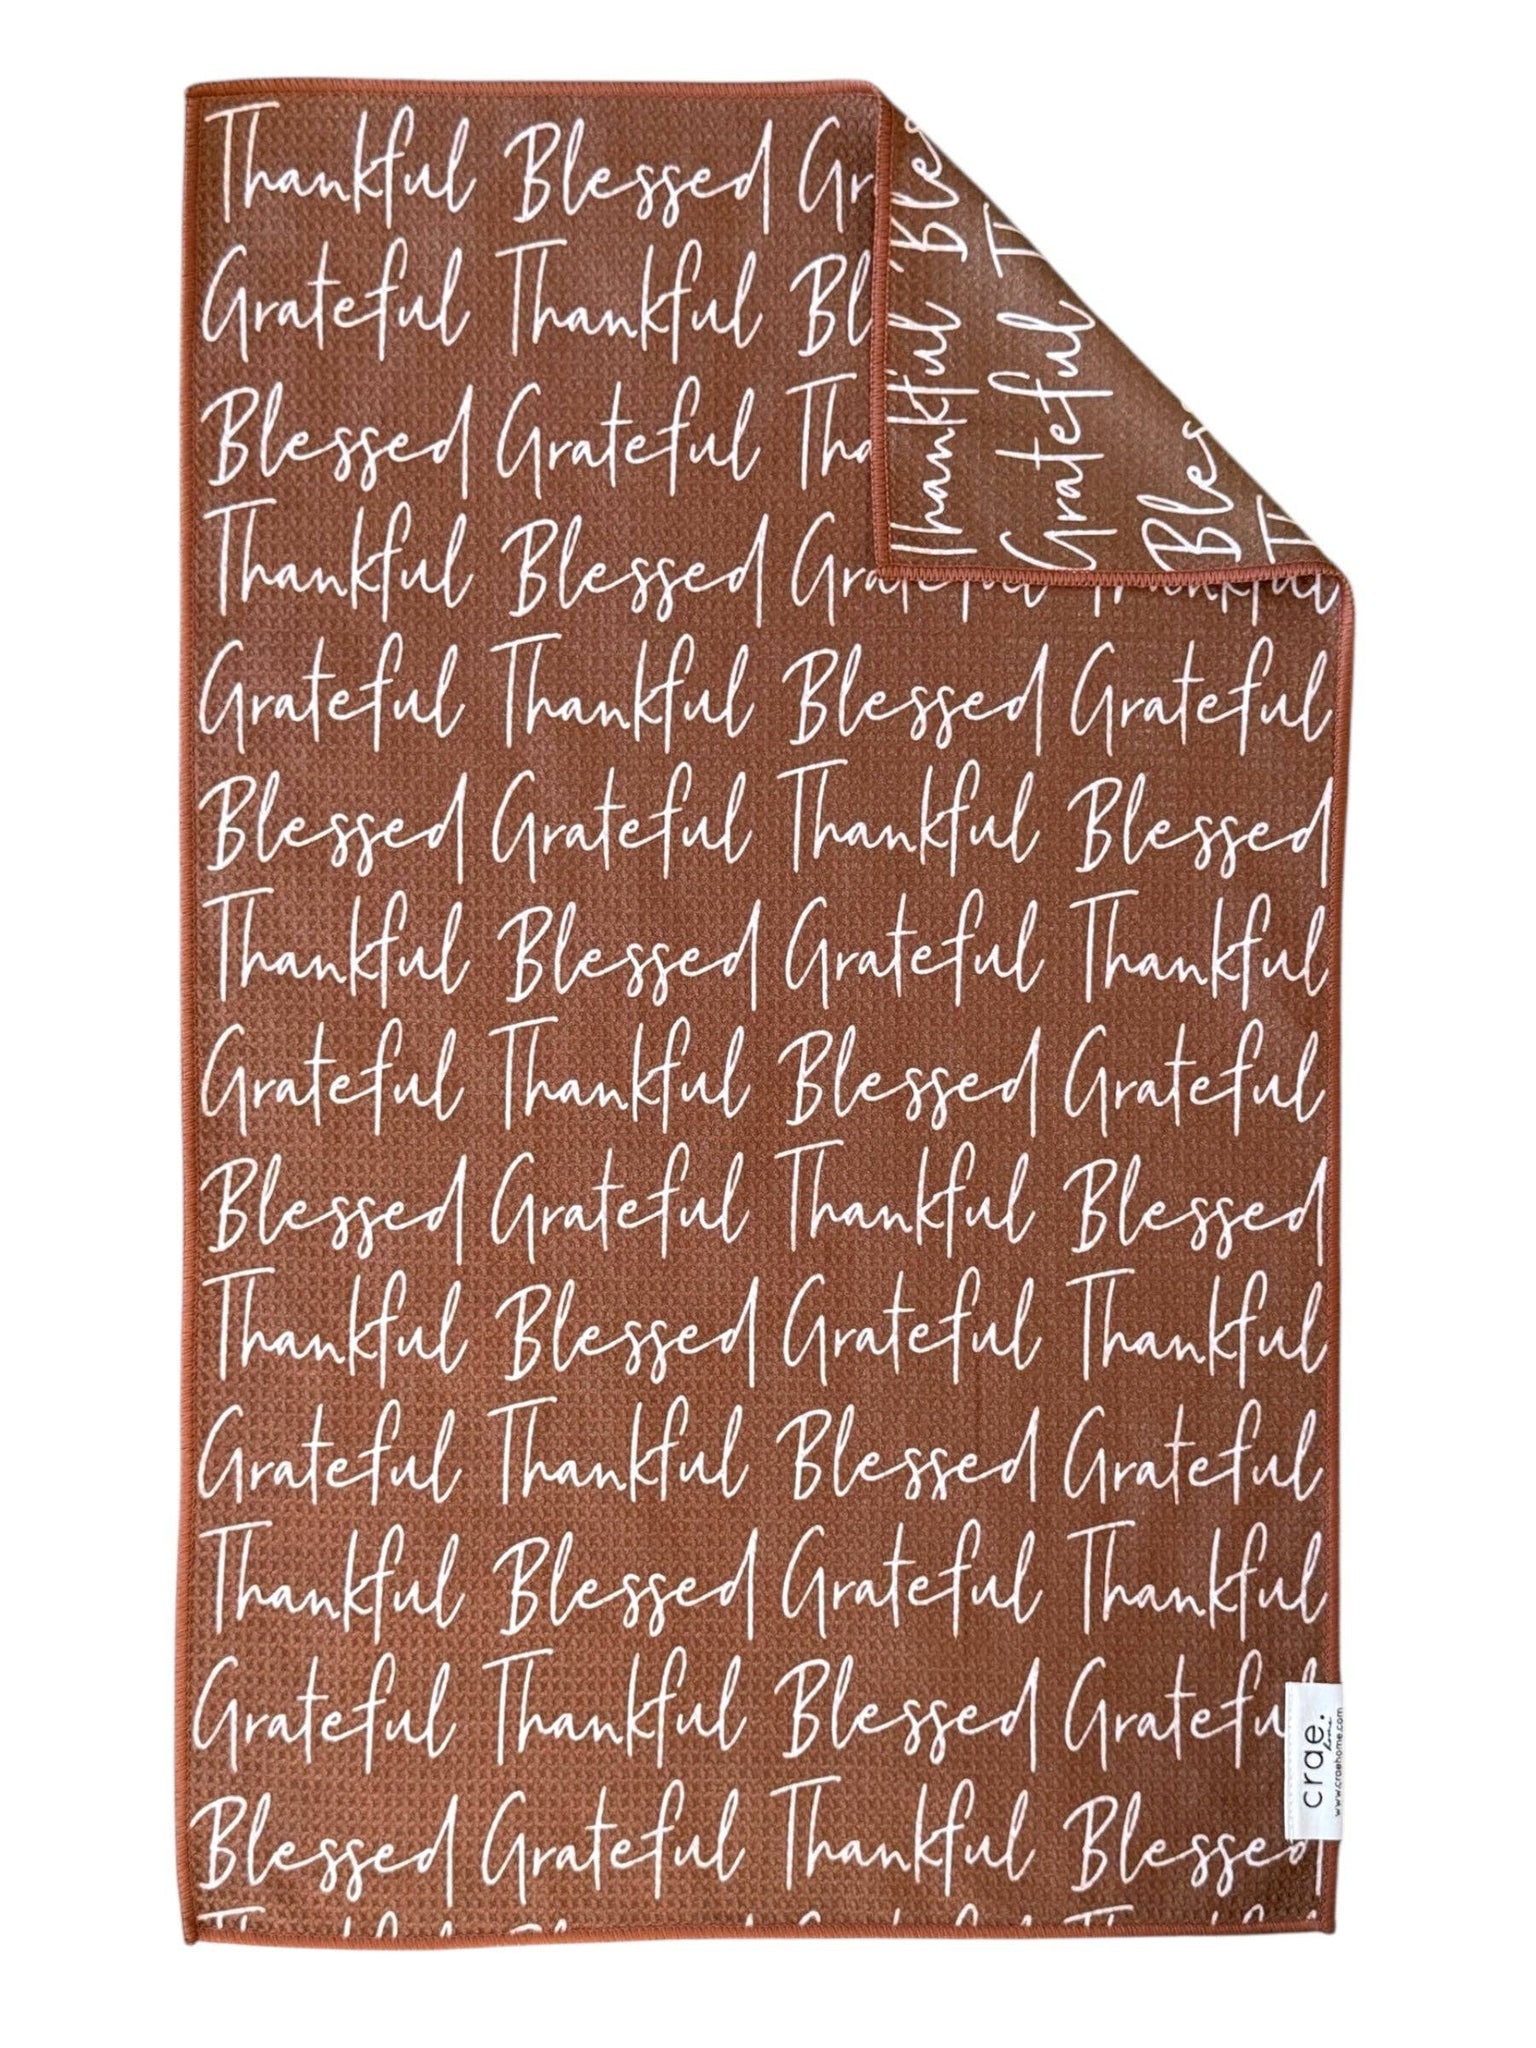 Thankful Blessed Gr
Grateful Thankful Bl
Blessed Grateful Tha
Thankful Blessed Grateful Thankful
Grateful Thankful Blessed Grateful
Blessed Grateful Thankful Blessed
Thankful Blessed Grateful Thankful
Grateful Thankful Blessed Grateful
Blessed Grateful Thankful Blessed
Thankful Blessed Grateful Thankful
Grateful Thankful Blessed Grateful
Thankful Blessed Grateful Thankful
Grateful Thankful Blessed Gratefu
Blessed Grateful Thankful Blessed
Thankful Blessed Grateful Thankful
Thankful Bles
Grateful T
Bles
crae.
home
www.craehome.com